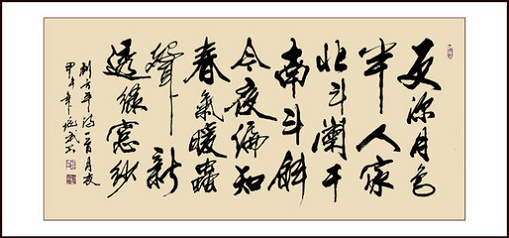 更深月色
半人家
北斗阑干
南斗斜
今夜偏知
春氣暖蟲
聲新
透绿窗纱
刘方平诗一首月夜
甲午年